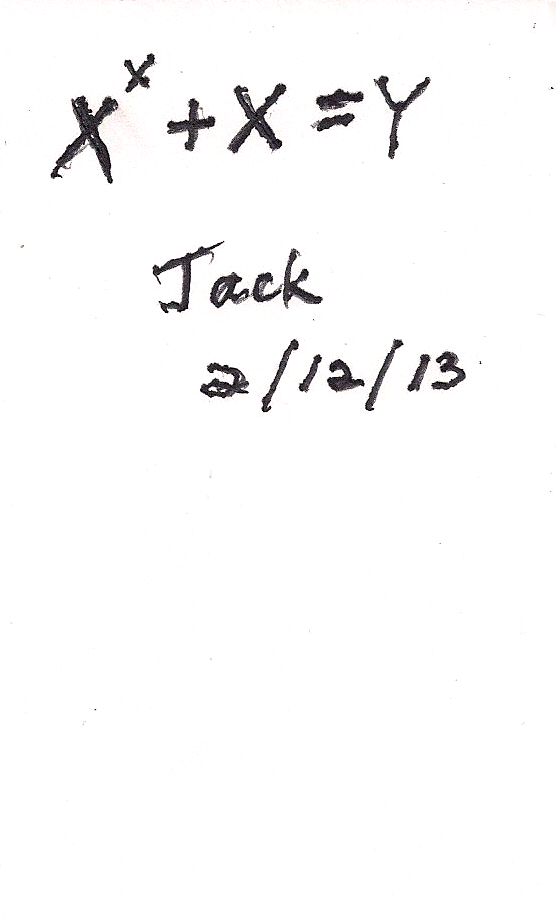 Xˣ + X = Y
Jack
2/12/13